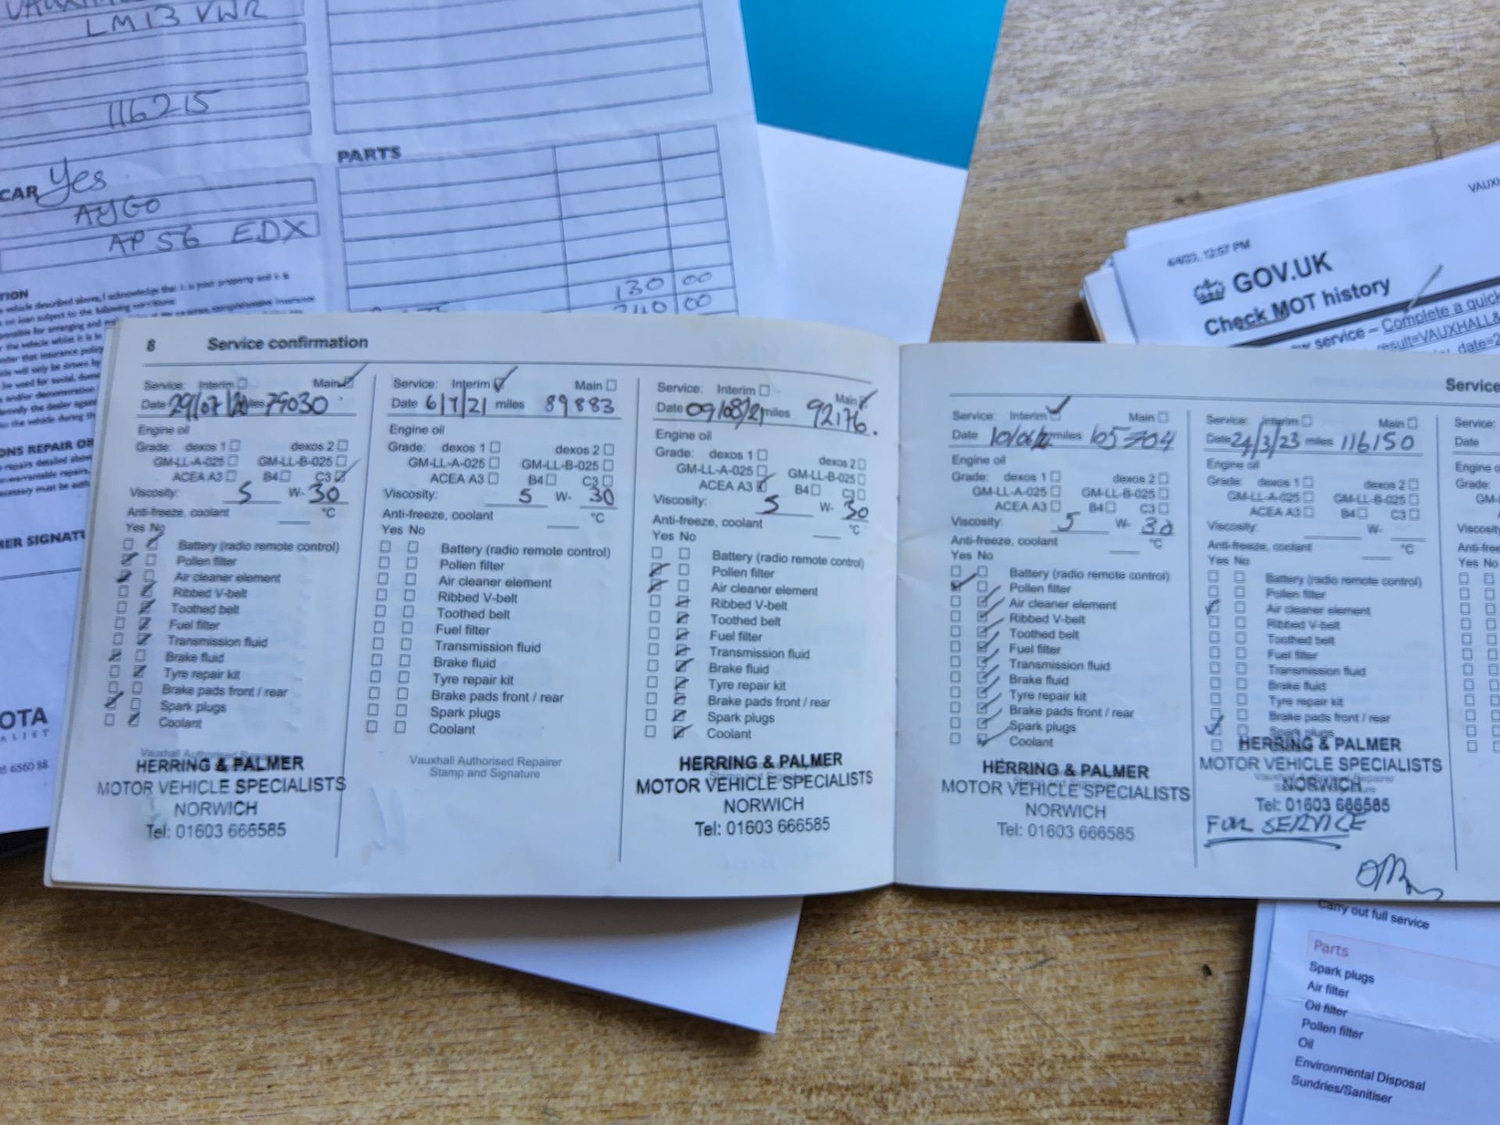 LM13 VWR
116215
CAR Yes
AYGO
AP56 EDX
PARTS
130 00
240 00
6/4/23, 12:57 PM
GOV.UK
Check MOT history
service – Complete a quick
result=VAUXHALL&
date=2
8 Service confirmation
Service: Interim Main
Date 29/07/20 miles 79030
Engine oil
Grade: dexos 1 dexos 2
GM-LL-A-025 GM-LL-B-025
ACEA A3 B4 C3
Viscosity: 5 W- 30
Anti-freeze, coolant °C
Yes No
Battery (radio remote control)
Pollen filter
Air cleaner element
Ribbed V-belt
Toothed belt
Fuel filter
Transmission fluid
Brake fluid
Tyre repair kit
Brake pads front / rear
Spark plugs
Coolant
Vauxhall Authorised Repairer
HERRING & PALMER
MOTOR VEHICLE SPECIALISTS
NORWICH
Tel: 01603 666585
Service: Interim Main
Date 6/7/21 miles 89883
Engine oil
Grade: dexos 1 dexos 2
GM-LL-A-025 GM-LL-B-025
ACEA A3 B4 C3
Viscosity: 5 W- 30
Anti-freeze, coolant °C
Yes No
Battery (radio remote control)
Pollen filter
Air cleaner element
Ribbed V-belt
Toothed belt
Fuel filter
Transmission fluid
Brake fluid
Tyre repair kit
Brake pads front / rear
Spark plugs
Coolant
Vauxhall Authorised Repairer
Stamp and Signature
Service: Interim Main
Date 09/08/21 miles 92176.
Engine oil
Grade: dexos 1 dexos 2
GM-LL-A-025 GM-LL-B-025
ACEA A3 B4 C3
Viscosity: 5 W- 30
Anti-freeze, coolant °C
Yes No
Battery (radio remote control)
Pollen filter
Air cleaner element
Ribbed V-belt
Toothed belt
Fuel filter
Transmission fluid
Brake fluid
Tyre repair kit
Brake pads front / rear
Spark plugs
Coolant
HERRING & PALMER
MOTOR VEHICLE SPECIALISTS
NORWICH
Tel: 01603 666585
Service
Service: Interim Main
Date 10/06/22 miles 105704
Engine oil
Grade: dexos 1 dexos 2
GM-LL-A-025 GM-LL-B-025
ACEA A3 B4 C3
Viscosity: 5 W- 30
Anti-freeze, coolant °C
Yes No
Battery (radio remote control)
Pollen filter
Air cleaner element
Ribbed V-belt
Toothed belt
Fuel filter
Transmission fluid
Brake fluid
Tyre repair kit
Brake pads front / rear
Spark plugs
Coolant
HERRING & PALMER
MOTOR VEHICLE SPECIALISTS
NORWICH
Tel: 01603 666585
Service: Interim Main
Date 24/3/23 miles 116150
Engine oil
Grade: dexos 1 dexos 2
GM-LL-A-025 GM-LL-B-025
ACEA A3 B4 C3
Viscosity: W-
Anti-freeze, coolant °C
Yes No
Battery (radio remote control)
Pollen filter
Air cleaner element
Ribbed V-belt
Toothed belt
Fuel filter
Transmission fluid
Brake fluid
Tyre repair kit
Brake pads front / rear
Spark plugs
HERRING & PALMER
MOTOR VEHICLE SPECIALISTS
NORWICH
Tel: 01603 666585
FULL SERVICE
Service:
Date
Engine o
Grade:
GM-
Viscosit
Anti-free
Yes No
Carry out full service
Parts
Spark plugs
Air filter
Oil filter
Pollen filter
Oil
Environmental Disposal
Sundries/Sanitiser